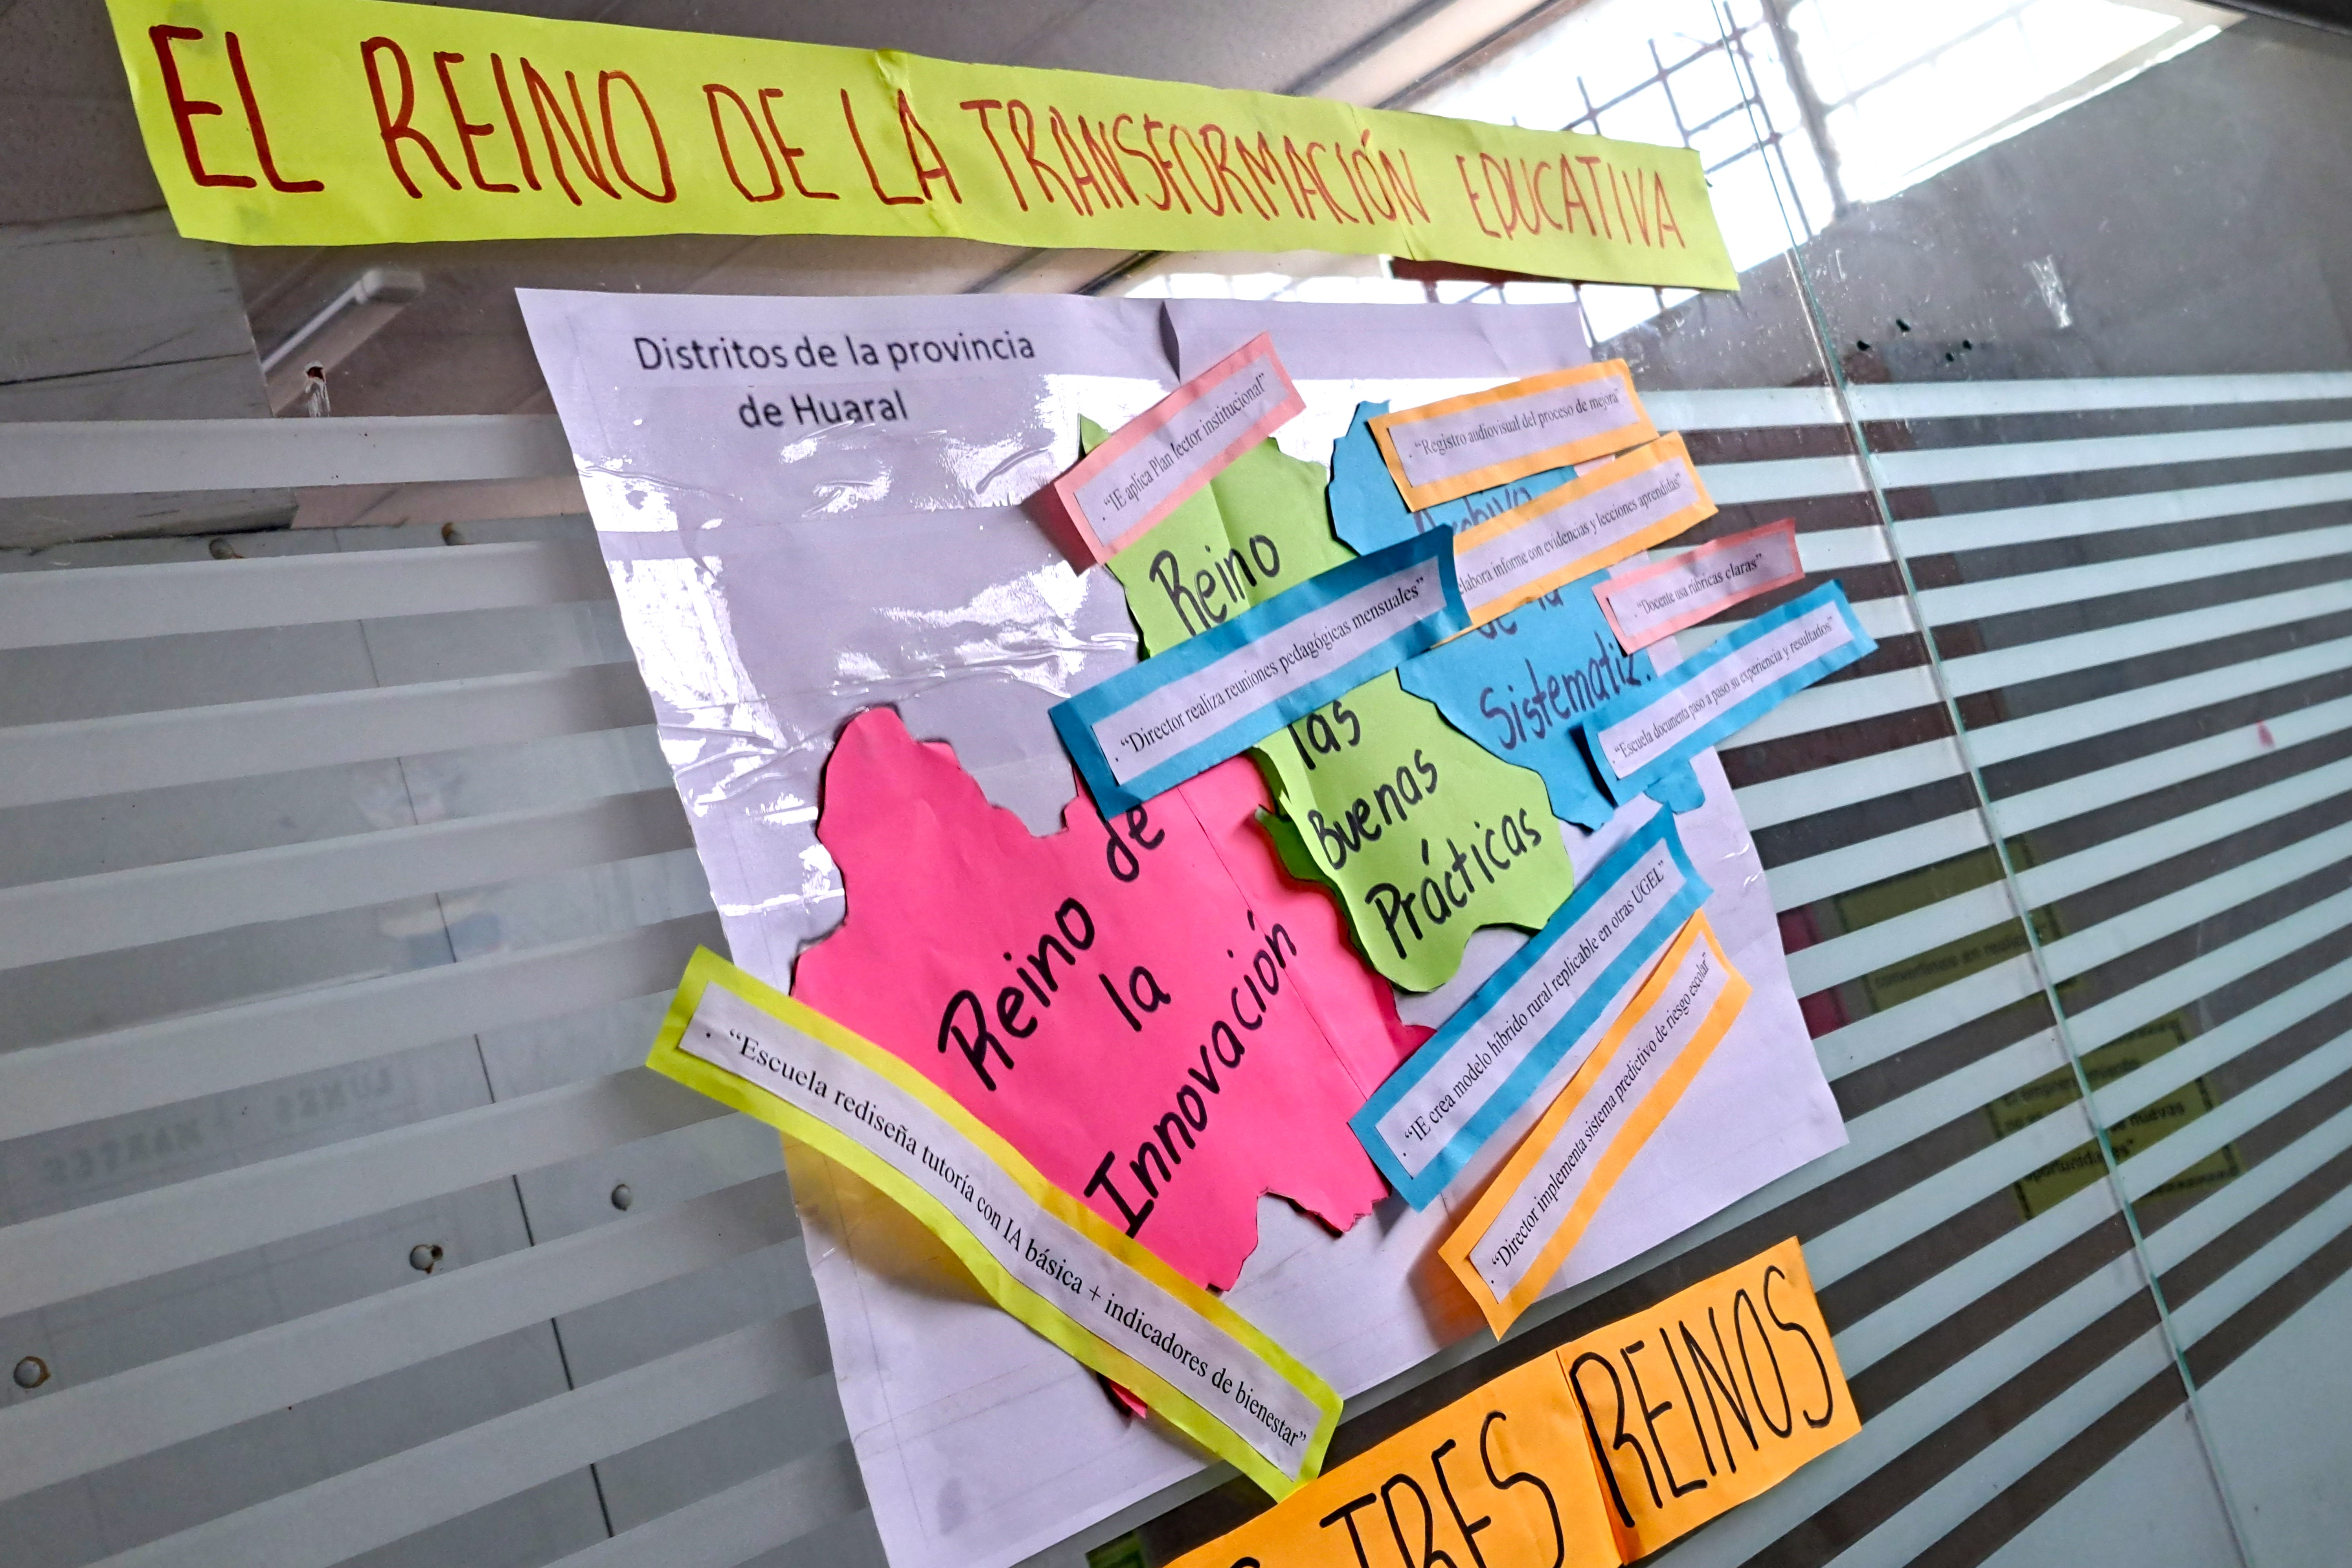 EL REINO DE LA TRANSFORMACIÓN EDUCATIVA
Distritos de la provincia
de Huaral
"IE aplica Plan lector institucional"
"Registro audiovisual del proceso de mejora"
Archivo
elabora informe con evidencias y lecciones aprendidas"
"Docente usa rúbricas claras"
de la
Sistematiz.
"Escuela documenta paso a paso su experiencia y resultados"
Reino
"Director realiza reuniones pedagógicas mensuales"
las
Buenas
Prácticas
Reino de
la
Innovación
"IE crea modelo híbrido rural replicable en otras UGEL"
"Director implementa sistema predictivo de riesgo escolar"
"Escuela rediseña tutoría con IA básica + indicadores de bienestar"
TRES REINOS